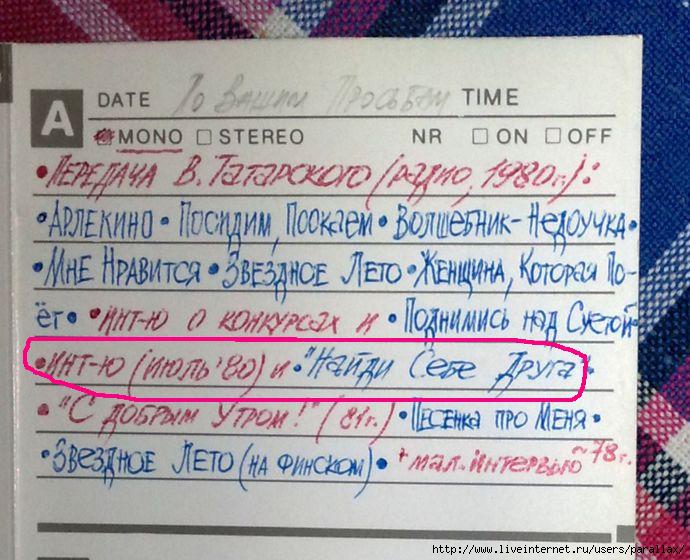 A DATE По Вашим Просьбам TIME
MONO STEREO NR ON OFF
•ПЕРЕДАЧА В. ТАТАРСКОГО (РАДИО, 1980г.):
•АРЛЕКИНО•ПОСИДИМ, ПООКАЕМ•ВОЛШЕБНИК-НЕДОУЧКА•
•МНЕ НРАВИТСЯ•ЗВЕЗДНОЕ ЛЕТО•ЖЕНЩИНА, КОТОРАЯ ПО-
ёт••ИНТ-Ю О КОНКУРСАХ И •ПОДНИМИСЬ НАД СУЕТОЙ
•ИНТ-Ю (ИЮЛЬ '80) И •"НАЙДИ СЕБЕ ДРУГА"•
•"С ДОБРЫМ УТРОМ!" (81г.) •ПЕСЕНКА ПРО МЕНЯ•
•ЗВЕЗДНОЕ ЛЕТО (НА ФИНСКОМ)• +МАЛ. ИНТЕРВЬЮ ~78г.
http://www.liveinternet.ru/users/parallax/